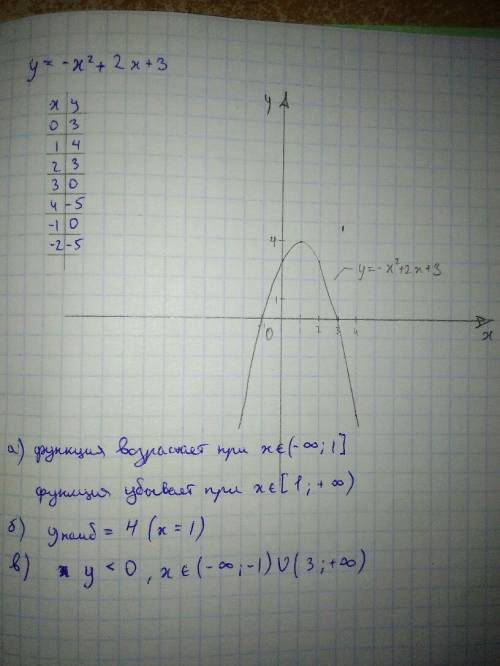 y = -x² + 2x + 3
x y
0 3
1 4
2 3
3 0
4 -5
-1 0
-2 -5
y
4
y = -x² + 2x + 3
1
0 1 2 3 4
x
а) функция возрастает при x ∈ (-∞; 1]
функция убывает при x ∈ [1; +∞)
б) yнаиб = 4 (x = 1)
в) y < 0, x ∈ (-∞; -1) ∪ (3; +∞)